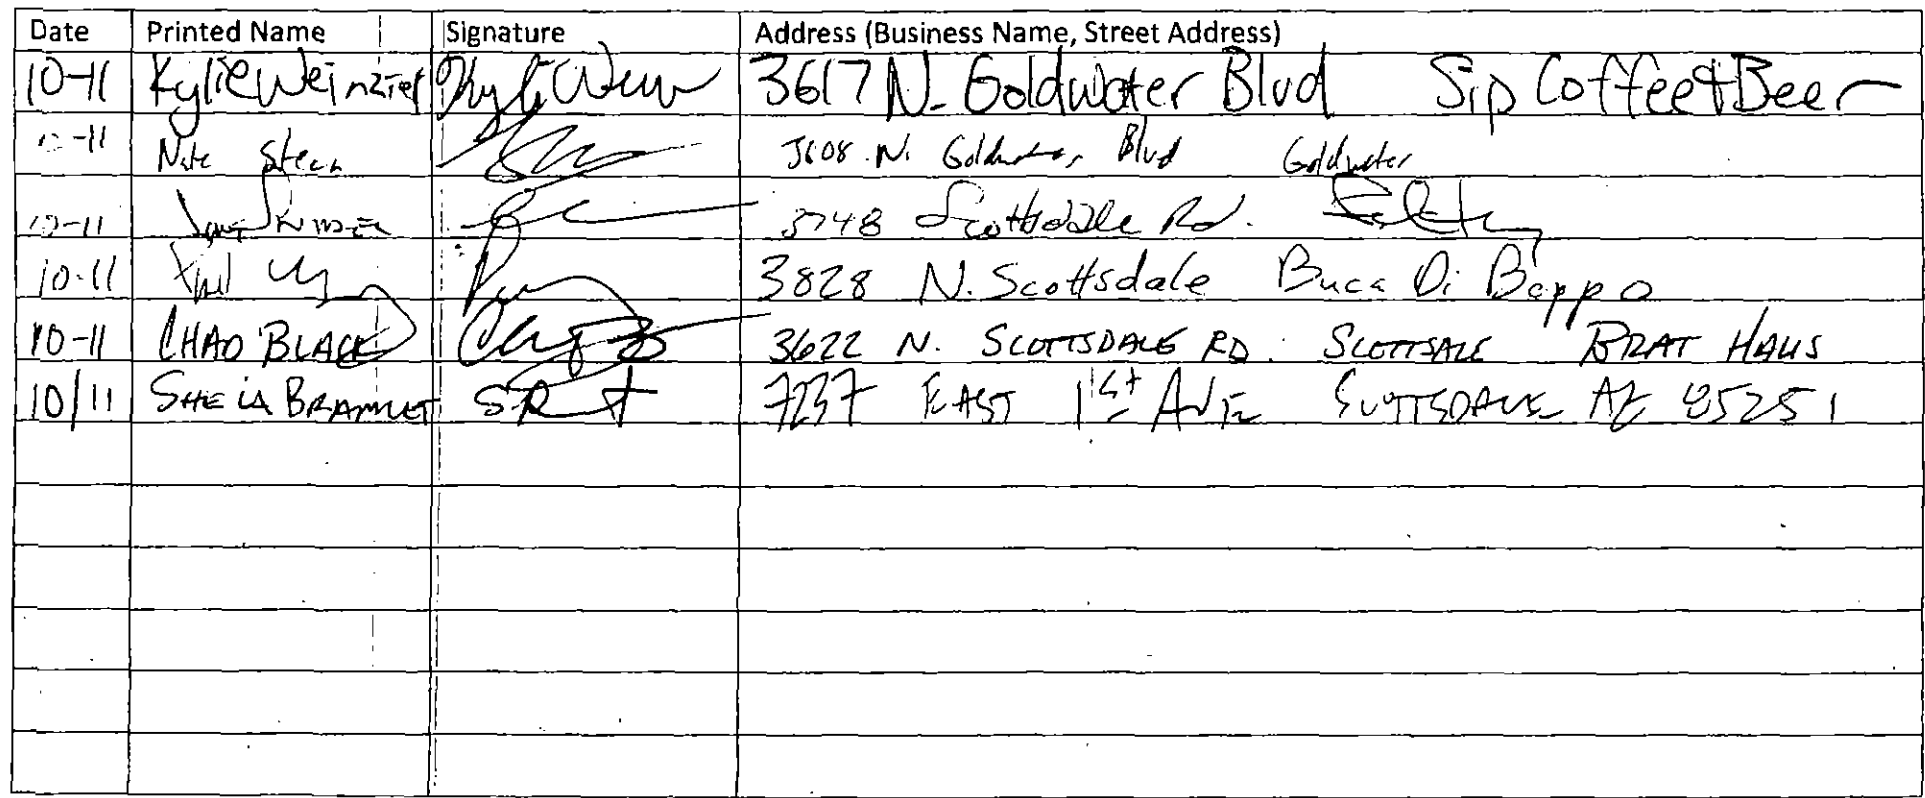 Date Printed Name Signature Address (Business Name, Street Address)
10-11 Kylie Weinzierl 3617 N. Goldwater Blvd Sip Coffee & Beer
10-11 Nate Stern 3608 N. Goldwater Blvd Goldwater
10-11 3748 Scottsdale Rd.
10-11 Phil 3828 N. Scottsdale Buca Di Beppo
10-11 CHAD BLACK 3622 N. SCOTTSDALE RD. SCOTTSALE BRAT HAUS
10/11 SHEILA BRAMLET 7237 EAST 1st AVE SCOTTSDALE AZ 85251